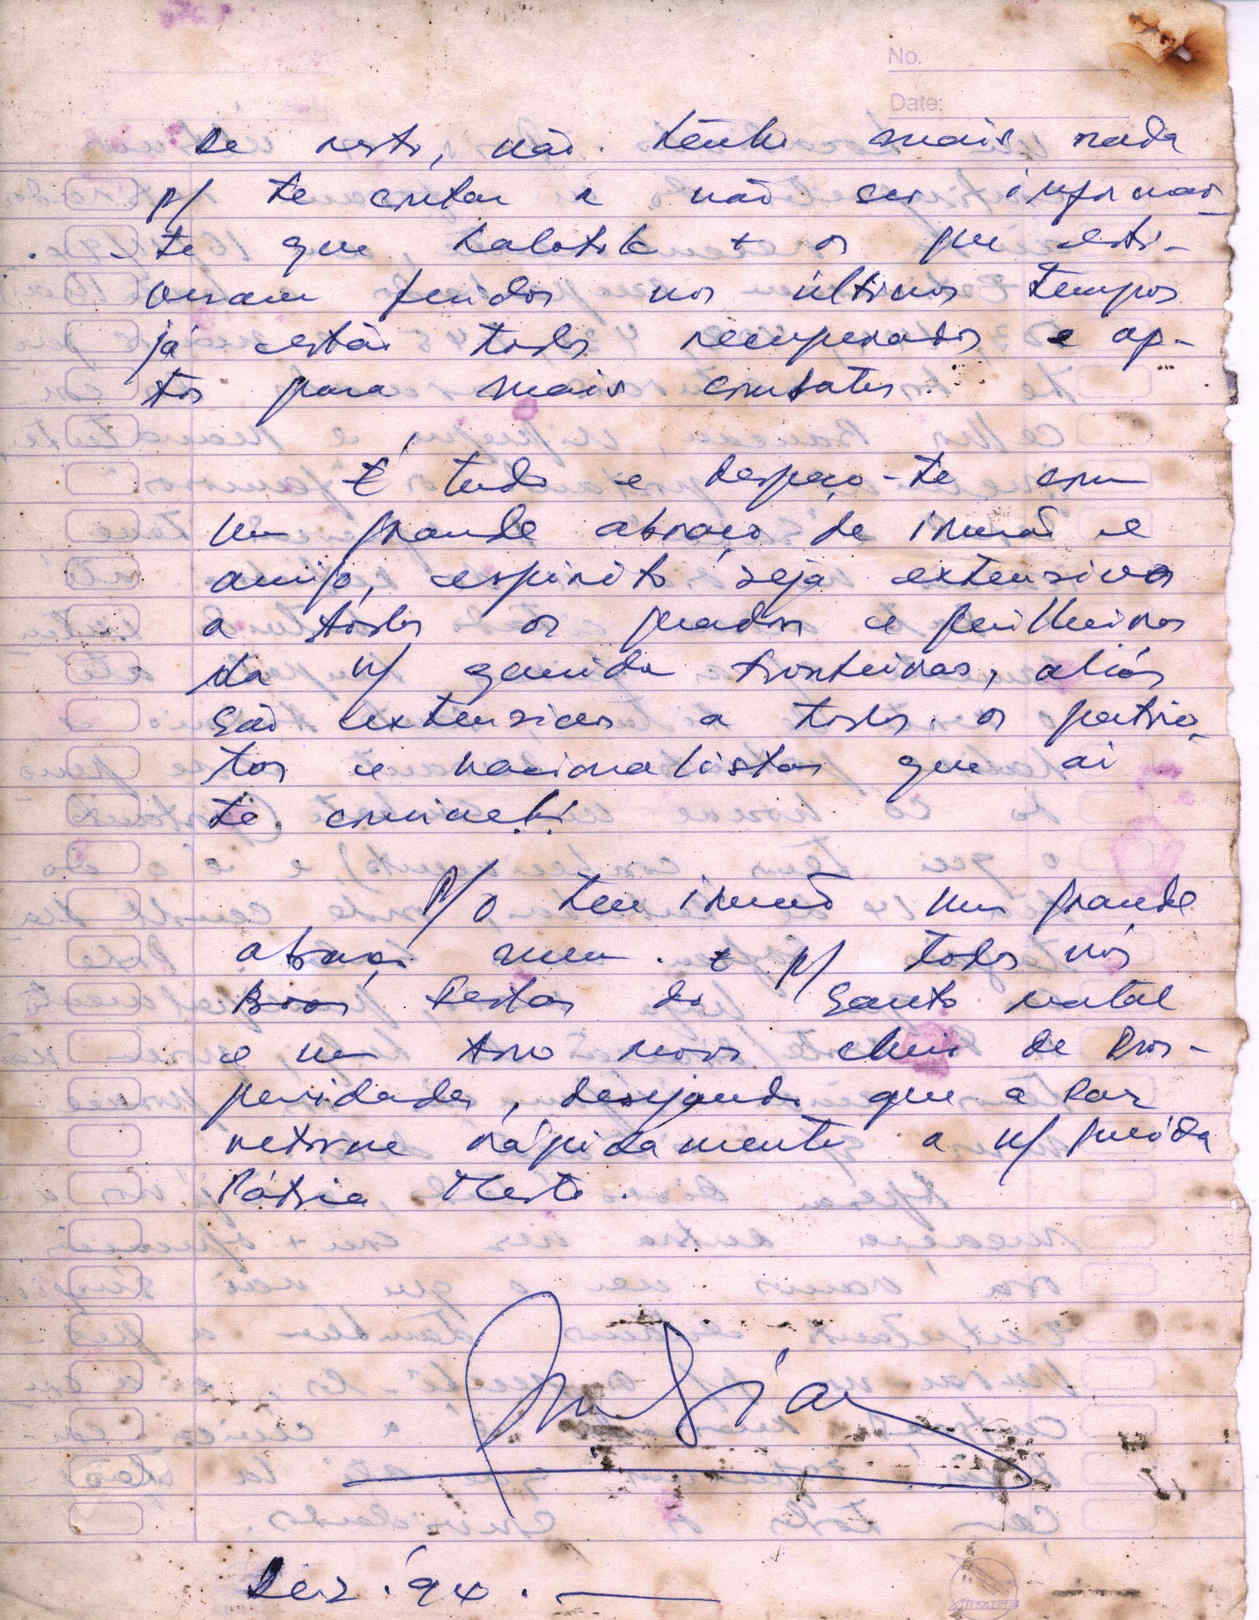 No.
Date:
De resto, não tenho mais nada
p/ te contar a não ser informar-
-te que Lalotok + os que esti-
veram feridos nos últimos tempos
já estão todos recuperados e ap-
tos para mais combates.
É tudo e despeço-te com
um grande abraço de irmão e
amigo, espirito seja extensivo
a todos os quadros e guilheiros
da n/ querida fronteiras, aliás
são extensivos a todos os patrio-
tas e nacionalistas que ai
te
P/ o teu irmão um grande
abraço meu. e p/ todos nós
Boas Festas do Santo natal
e um Ano novo cheio de Pros-
peridades, desejando que a Paz
retorne rápidamente a n/ querida
Pátria Mãe.
Dez. 94.